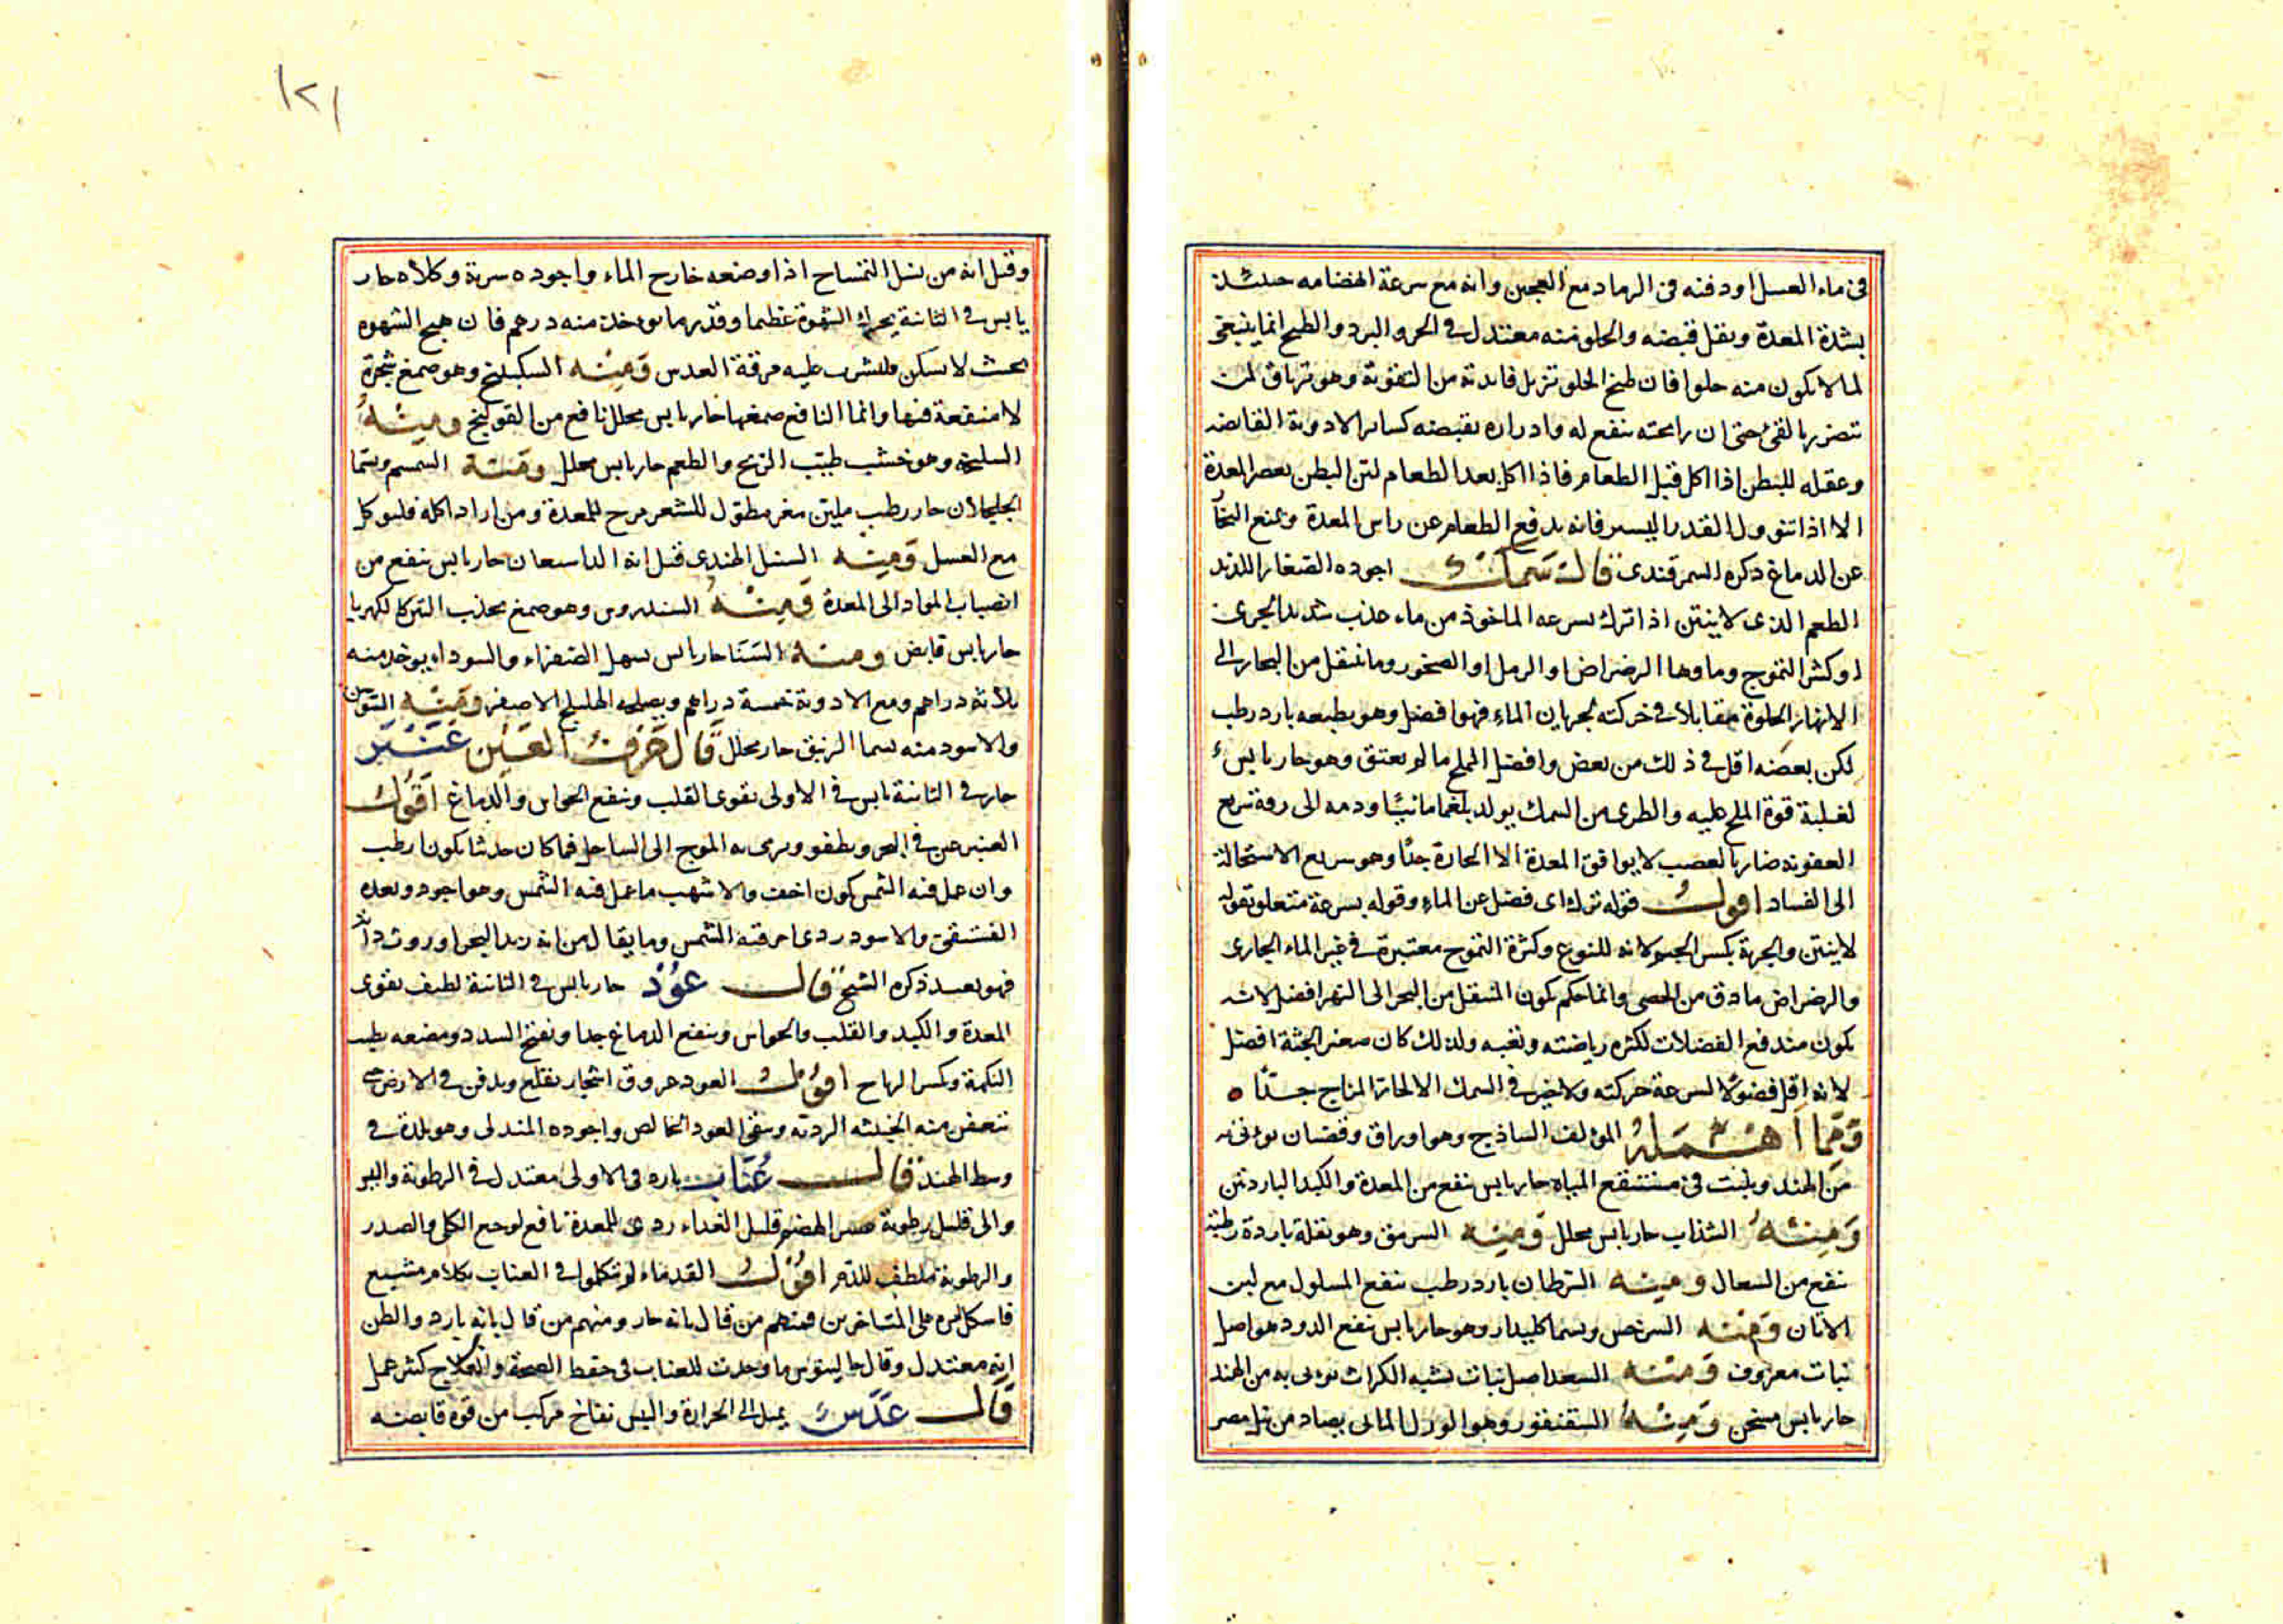 في ماء العسل او دفنه في الرماد مع العجين وانه مع سرعة انهضامه حينئذ
بشدة المعدة ويقل قبضه والحلو منه معتدل في الحر والبرد والطبخ انما ينبغي
لما لا يكون منه حلوا فان طبخ الحلو تزيل فايدته من التقوية وهو ترياق لمن
تضرر بالقيء حتى ان رايحته ينفع له وادراره بقبضه كساير الادوية القابضه
وعقله للبطن اذا اكل قبل الطعام فاذا اكل بعد الطعام لين البطن بعصر المعدة
الا اذا تنوول القدر اليسير فانه يدفع الطعام عن راس المعدة ويمنع البخار
عن الدماغ ذكره السمرقندى قال سمك اجوده الصغار اللذيذ
الطعم الذى لا ينتن اذا ترك بسرعه الماخوذ من ماء عذب شديد الجرى
او كثير التموج وماوها الرضراض او الرمل او الصخور وما ينتقل من البحار الى
الانهار الحلوة مقابلا في حركته لجريان الماء فهو افضل وهو بطبعه بارد رطب
لكن بعضه اقل في ذلك من بعض وافضل المملح ما لم يعتق وهو حار يابس
لغلبة قوة الملح عليه والطرى من السمك يولد بلغما مائيا ودمه الى رقة سريع
العفونه ضار بالعصب لا يوافق المعدة الا الحارة جدا وهو سريع الاستحالة
الى الفساد اقول قوله ترك اى فضل عن الماء وقوله بسرعة متعلق بقوله
لا ينتن والجرية بكسر الجيم لانه للنوع وكثرة التموج معتبرة في غير الماء الجارى
والرضراض ما دق من الحصى وانما حكم بكون المنتقل من البحر الى النهر افضل لانه
يكون مندفع الفضلات لكثره رياضته وتعبه ولذلك كان صغير الجثة افضل
لانه اقل فضولا لسرعة حركته ولا خير في السمك الا لحار المزاج جدا ه
ومما اهمله المؤلف الساذج وهو اوراق وقضبان يؤتى به
من الهند وينبت في مستنقع المياه حار يابس ينفع من المعدة والكبد الباردتين
ومنه السذاب حار يابس محلل ومنه السرمق وهو بقلة باردة رطبة
ينفع من السعال ومنه السرطان بارد رطب ينفع المسلول مع لبن
الاتان ومنه السرخس ويسما كليدار وهو حار يابس ينفع الدود هو اصل
نبات معروف ومنه السعد اصل نبات يشبه الكراث يوتى به من الهند
حار يابس مسخن ومنه السقنقور وهو الورل المائى يصاد من نيل مصر
١٢١
وقيل انه من نسل التمساح اذا وضعه خارج الماء واجوده سرته وكلاه حار
يابس في الثانية يحرك الشهوة عظيما وقدر ما يوخذ منه درهم فان هيج الشهوه
بحيث لا يسكن فليشرب عليه مرقة العدس ومنه السكبينج وهو صمغ شجرة
لا منفعة فيها وانما النافع صمغها حار يابس محلل نافع من القولنج ومنه
السليخه وهو خشب طيب الريح والطعم حار يابس محلل ومنه السمسم ويسما
الجلجلان حار رطب ملين مغر مطول للشعر مرخ للمعدة ومن اراد اكله فليوكل
مع العسل ومنه السنبل الهندى قيل انه الناسمان حار يابس ينفع من
انصباب المواد الى المعدة ومنه السندروس وهو صمغ يجذب التبن كالكهربا
حار يابس قابض ومنه السنا حار يابس يسهل الصفراء والسوداء يوخذ منه
ثلاثة دراهم ومع الادوية خمسة دراهم ويصلحه الهليلج الاصفر ومنه السوسن
والاسود منه يسما الزنبق حار محلل قال حرف العين عنبر
حار في الثانية يابس في الاولى يقوى القلب وينفع الحواس والدماغ اقول
العنبر عين في البحر ويطفو ويرمى به الموج الى الساحل فما كان حديثا يكون ارطب
وان عمل فيه الشمس يكون اخف والاشهب ما عمل فيه الشمس وهو اجود وبعده
الفستقى والاسود ردى احرقته الشمس وما يقال من انه زبد البحر او روث دابة
فهو بعيد ذكره الشيخ قال عود حار يابس في الثانية لطيف يقوى
المعدة والكبد والقلب والحواس وينفع الدماغ جدا ويفتح السدد ومضغه يطيب
النكهة ويكسر الرياح اقول العود عروق اشجار يقلع ويدفن في الارض حتى
يتعفن منه الخشبيه الرديه ويبقى العود الخالص واجوده المندلى وهو بلدة في
وسط الهند قال عناب بارد في الاولى معتدل في الرطوبة واليبس
والى قليل رطوبة عسر الهضم قليل الغداء ردى للمعدة نافع لوجع الكلى والصدر
والرطوبة ملطف للدم اقول القدماء لم يتكلموا في العناب بكلام مشبع
فاشكل امره على المتاخرين فمنهم من قال بانه حار ومنهم من قال بانه بارد والظن
انه معتدل وقال جالينوس ما وجدت للعناب في حفظ الصحة والعلاج كثير عمل
قال عدس يميل الى الحرارة واليبس نفاخ مركب من قوة قابضه